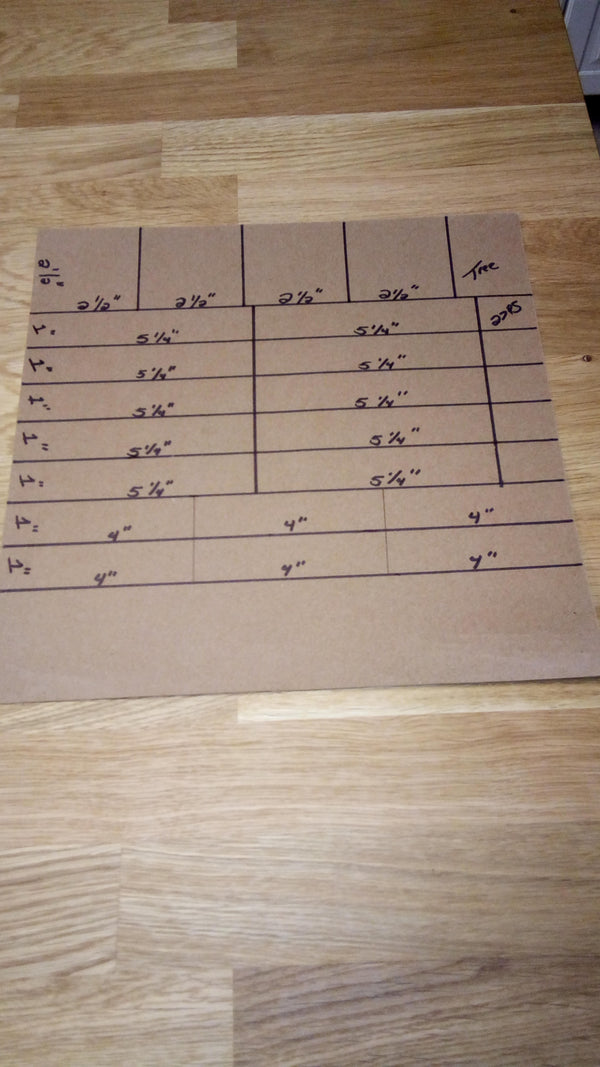 2½" 2½" 2½" 2½" Tree
1" 5¼" 5¼"
1" 5¼" 5¼"
1" 5¼" 5¼"
1" 5¼" 5¼"
1" 5¼" 5¼"
1" 4" 4" 4"
1" 4" 4" 4"